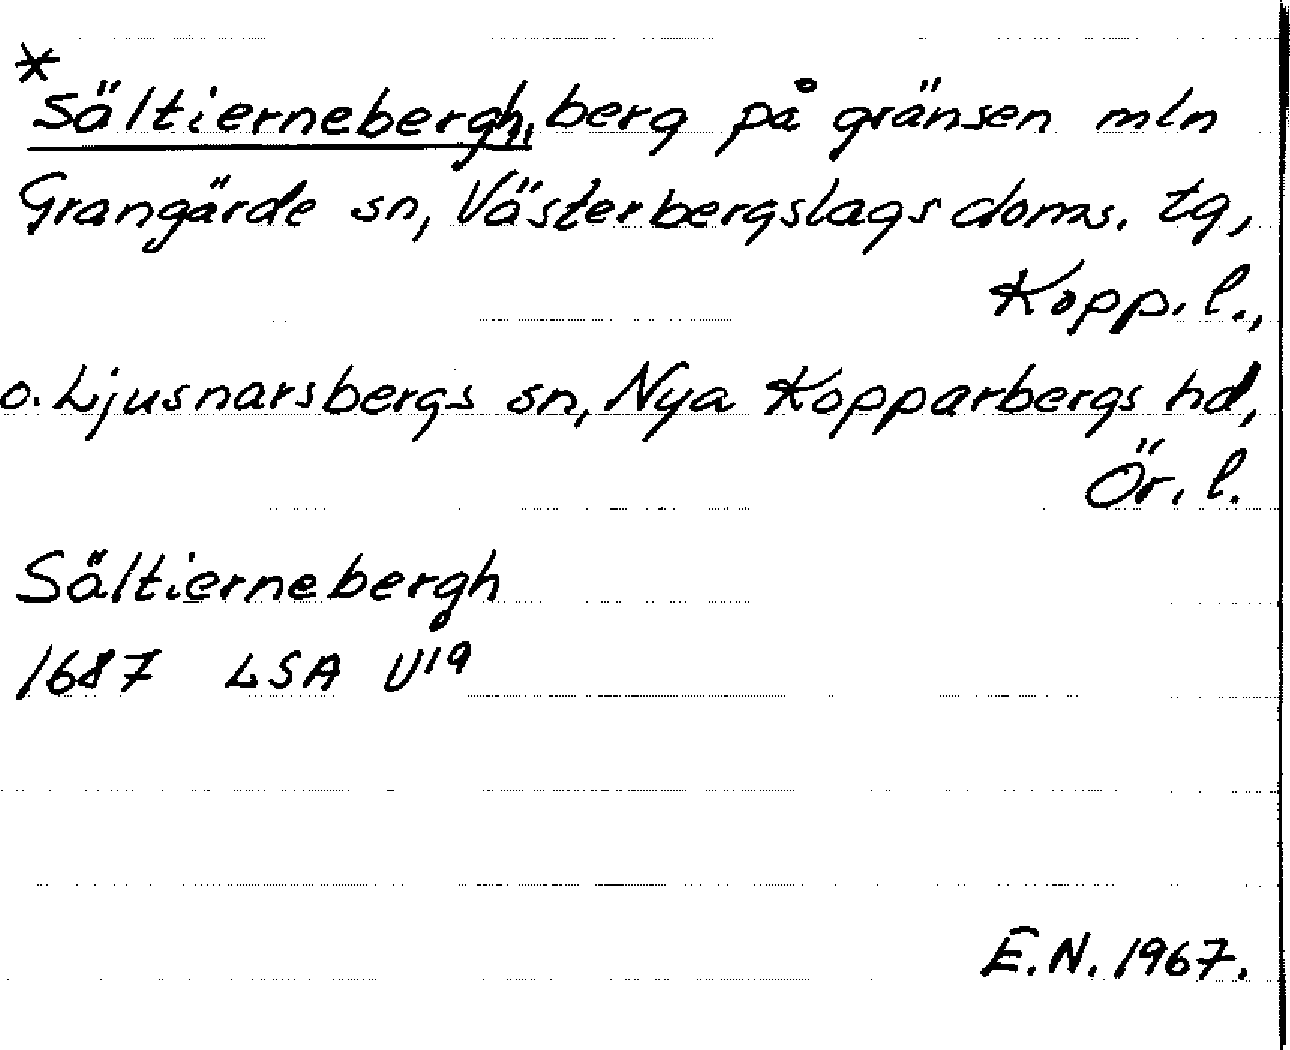 *Sältiernebergh, berg på gränsen mln
Grangärde sn, Västerbergslags doms. tg,
Kopp. l.,
o. Ljusnarsbergs sn, Nya Kopparbergs hd,
Ör. l.
Sältiernebergh
1687 LSA U19
E.N. 1967.